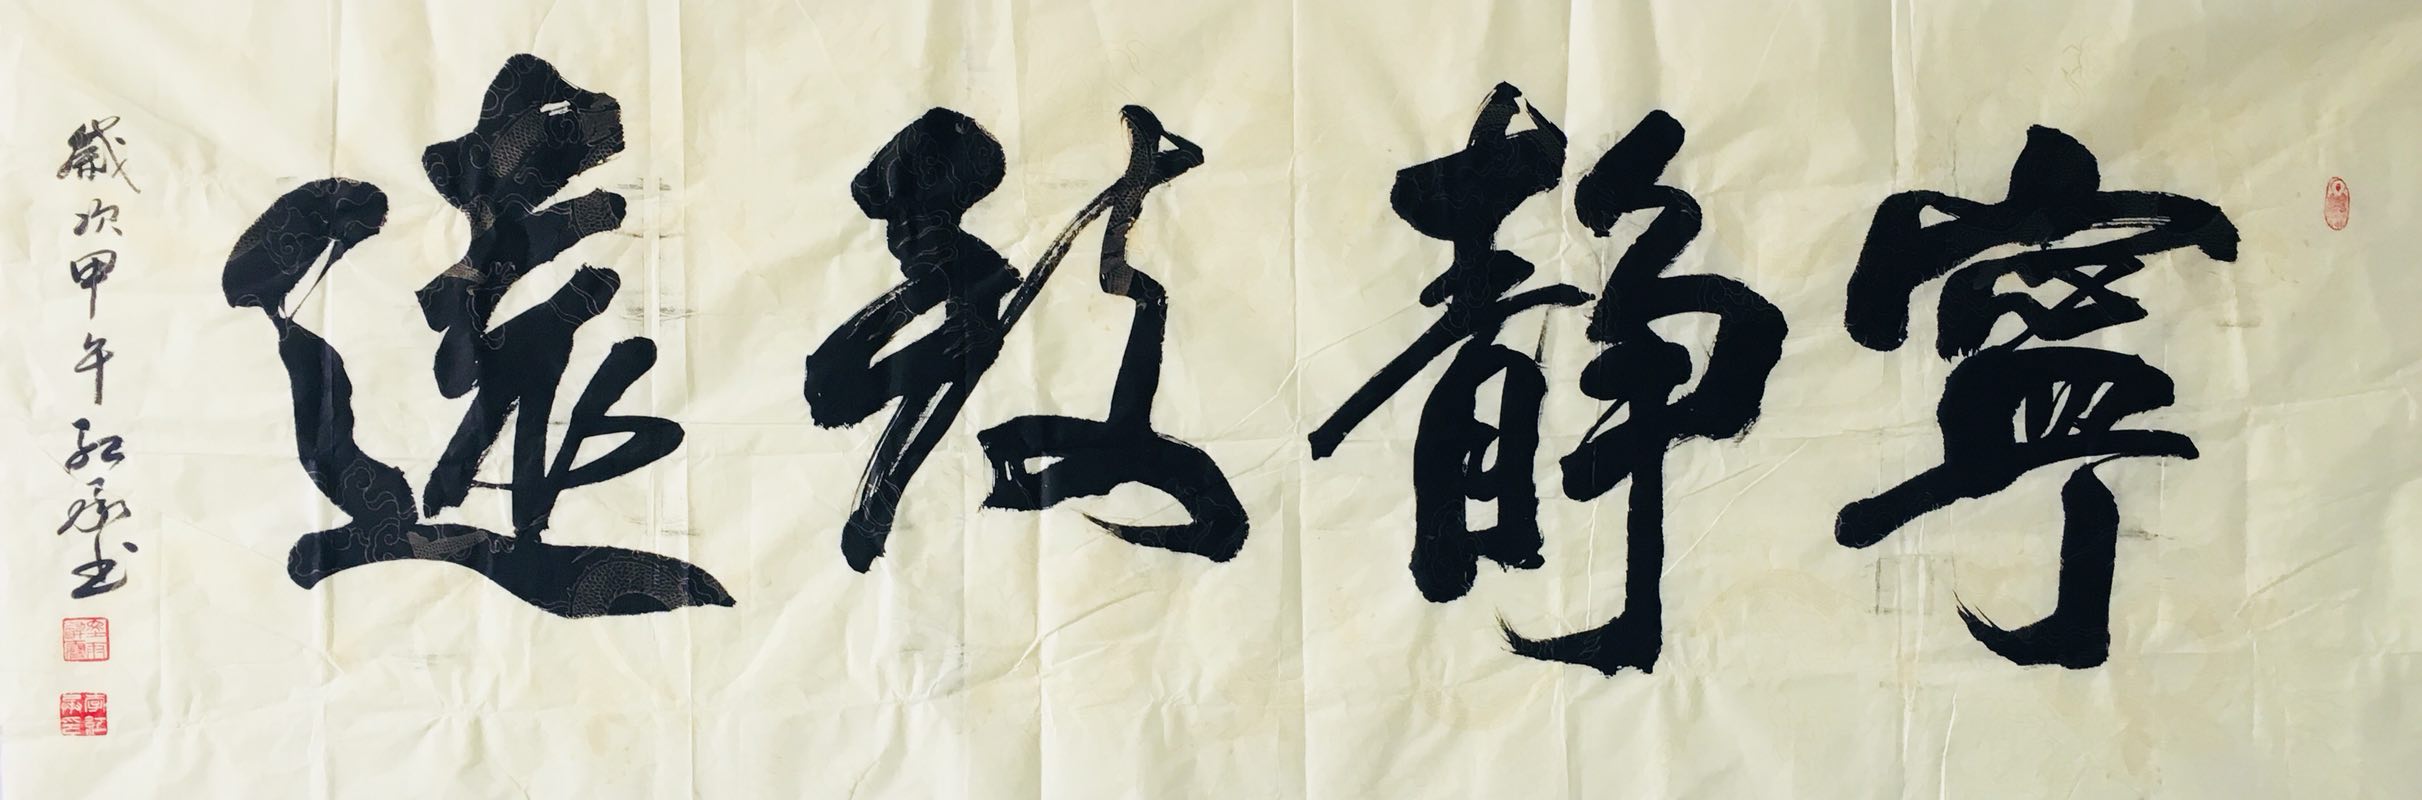 寧靜致遠
歲次甲午紅承书